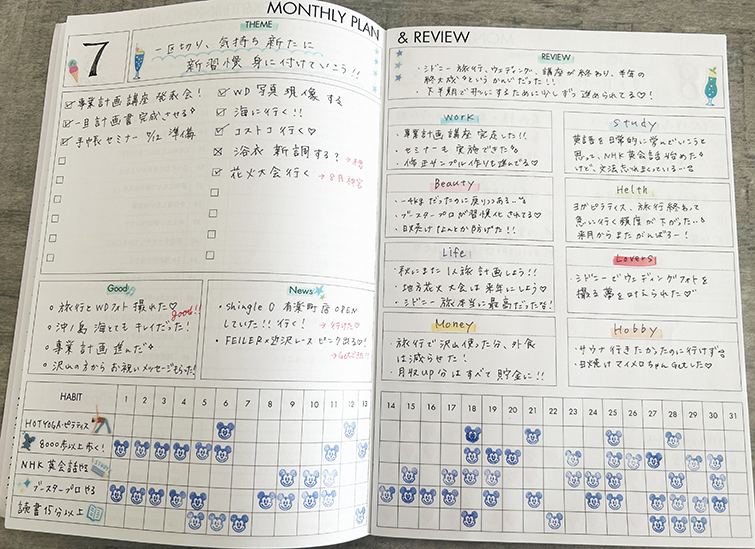 MONTHLY PLAN & REVIEW
THEME
7
一区切り、気持ち新たに
新習慣 身に付けていこう!!
事業計画講座 発表会!
一旦計画書 完成させる
手帳セミナー 7/12 準備
WD 写真 現像 する
海に行く!!
コストコ 行く♡
浴衣 新調する?
花火大会 行く → 8月 神宮
Good
旅行とWDフォト 撮れた♡
good!!
沖ノ島 海とても キレイだった!
事業 計画 進んだ
沢山の方から お祝いメッセージもらった!
News
shingle O 有楽町店 OPEN
していた!! 行く! → 行けた♡
FEILER×近沢レース ピンク出る♡!
→ Getできた!!
REVIEW
シドニー旅行、ウェディング、講座が終わり、半年の
終大成 という かんじだった!
下半期で 形にするために少しずつ 進められてる♡!
Work
事業計画 講座 完走した!!
セミナーも 実施できた
修正サンプル作りも進んでる♡
Study
英語を日常的に学んでいこうと
思って、NHK英会話始めた
けど、文法忘れまくっている…
Beauty
-4kgだったのに 戻りつつある…
ブースタープロが習慣化されてる♡
日焼けなんとか防げた!!
Helth
ヨガピラティス、旅行終わって
急に行く頻度が下がった…
来月からまた がんばろー!
Life
秋にまた1人旅 計画しよう!!
地方花火大会は来年にしよう♡
シドニー旅 本当に最高だったな!
Lovers
シドニーでウェディングフォトを
撮る夢を叶えられた♡
Money
旅行で沢山使った分、外食
は減らせた!
月収up分は すべて 貯金に!!
Hobby
サウナ行きたかったのに行けず
日焼けマイメロちゃんGetした♡
HABIT 1 2 3 4 5 6 7 8 9 10 11 12 13 14 15 16 17 18 19 20 21 22 23 24 25 26 27 28 29 30 31
HOTYOGA・ピラティス
8000歩以上歩く!
NHK 英会話やる
ブースタープロやる
読書15分以上